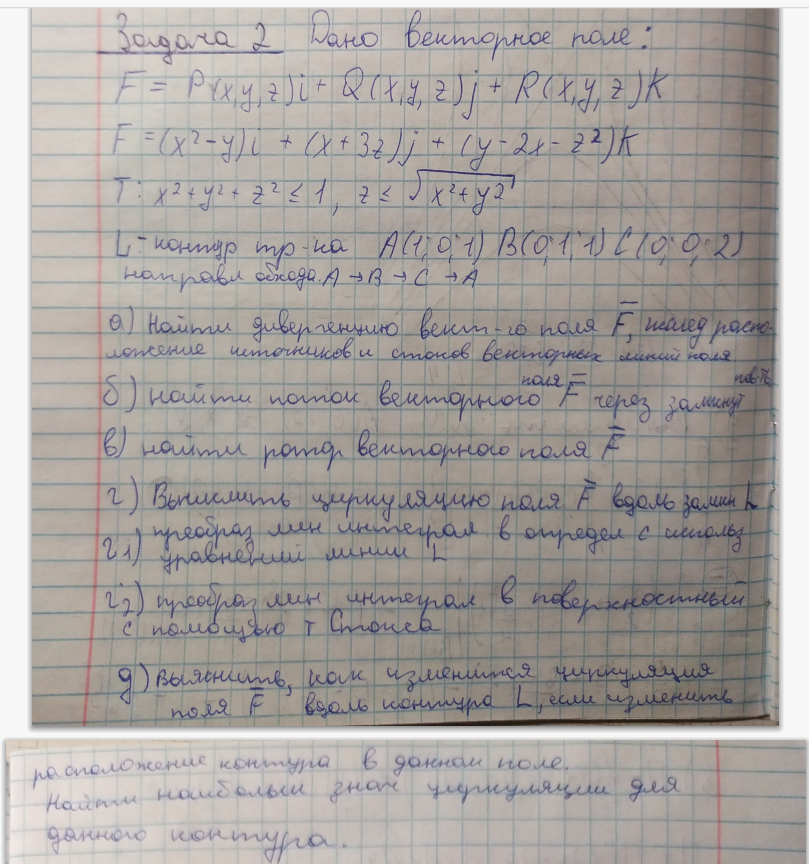 Задача 2 Дано векторное поле:
F = P(x,y,z)i + Q(x,y,z)j + R(x,y,z)K
F = (x²-y)i + (x+3z)j + (y-2x-z²)K
T: x²+y²+z² ≤ 1, z ≤ √x²+y²
L - контур тр-ка A(1;0;1) B(0;1;1) C(0;0;2)
направл обхода. A → B → C → A
а) Найти дивергенцию вект-го поля F̅, исслед распо-
ложение источников и стоков векторных линий поля
б) найти поток векторного поля F̅ через замкнут пов-ть
в) найти ротор векторного поля F̅
г) Вычислить циркуляцию поля F̅ вдоль замкн L
г1) преобраз лин интеграл в определ с использ
уравнений линии L
г2) преобраз лин интеграл в поверхностный
с помощью т Стокса
д) Выяснить, как изменится циркуляция
поля F̅ вдоль контура L, если изменить
расположение контура в данном поле.
Найти наибольш знач циркуляции для
данного контура.